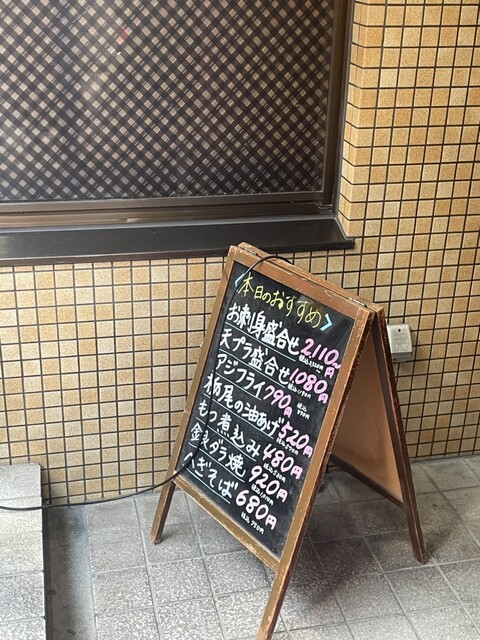 <本日のおすすめ>
お刺身盛合せ2,110円
天プラ盛合せ1,080円
アジフライ790円
栃尾の油あげ520円
もつ煮込み480円
銀ダラ焼920円
へぎそば680円